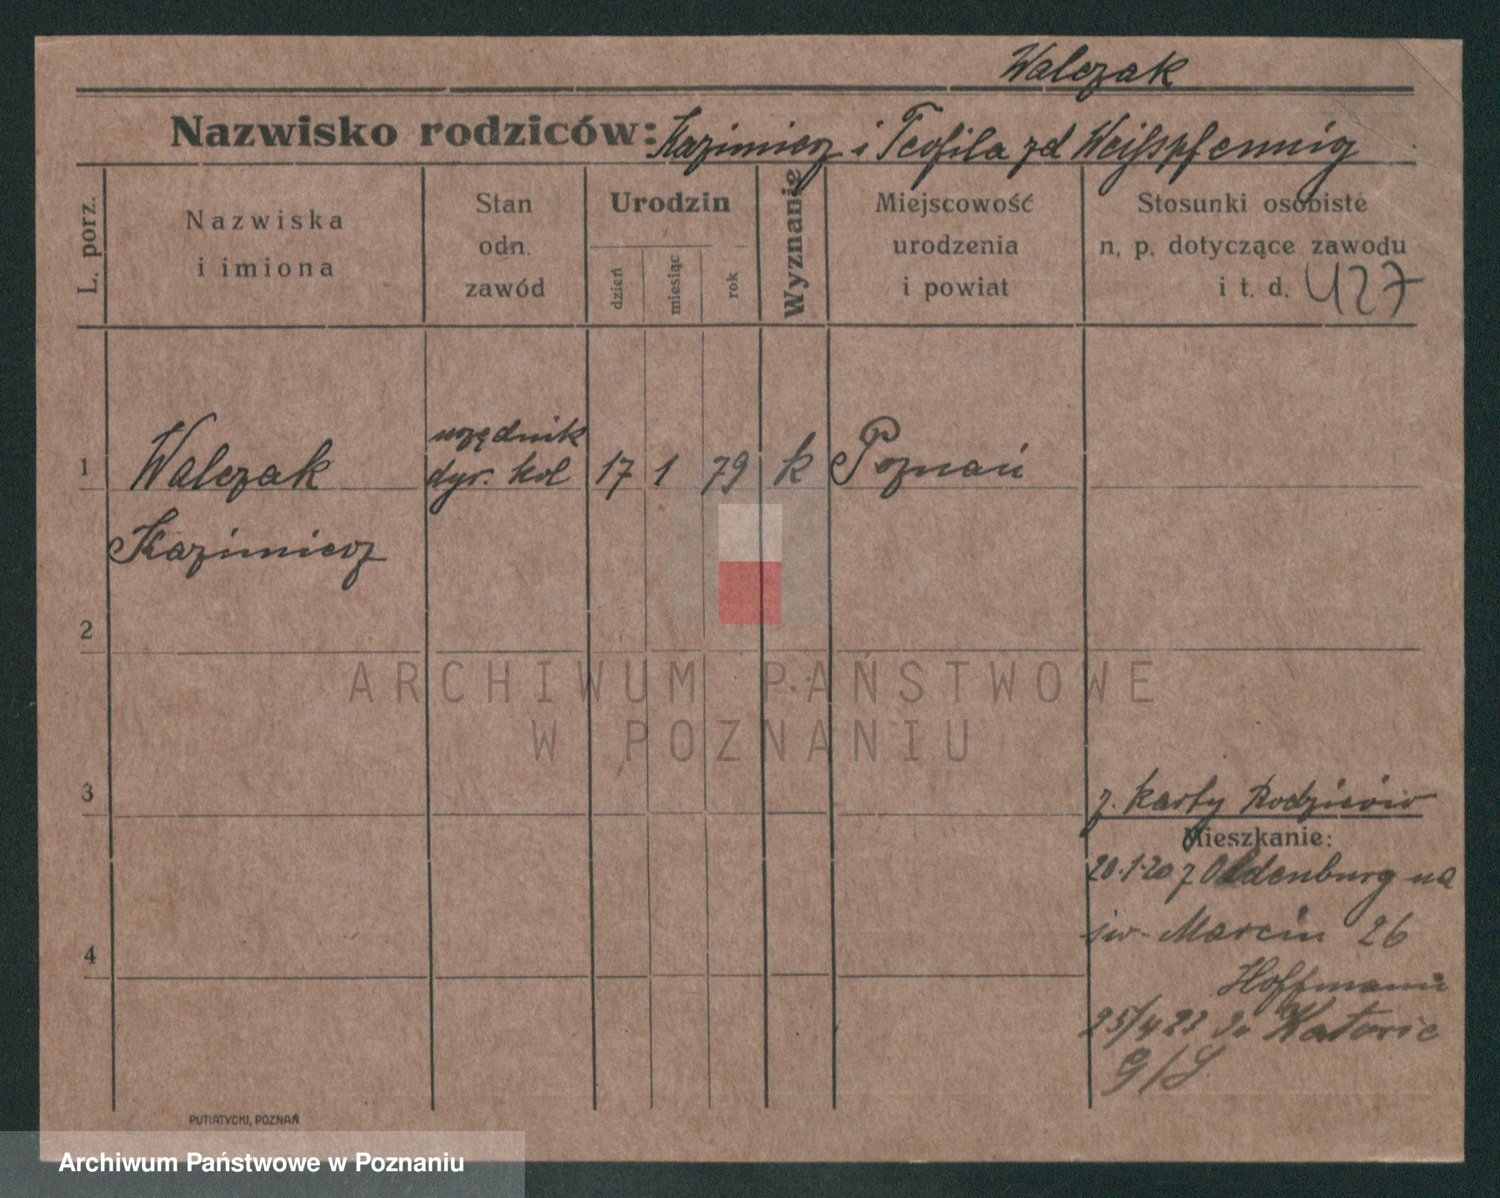 Walczak
Nazwisko rodziców: Kazimierz i Teofila zd Weißspfennig
L. porz.
Nazwiska
i imiona
Stan
odn.
zawód
Urodzin
dzień
miesiąc
rok
Wyznanie
Miejscowość
urodzenia
i powiat
Stosunki osobiste
n. p. dotyczące zawodu
i t. d. 427
urzędnik
1 Walczak dyr. kol 17 1 79 k Poznań
Kazimierz
2
ARCHIWUM PAŃSTWOWE
W POZNANIU
3
z. karty Rodziców
Mieszkanie:
20.1.20 z Oldenburg na
św. Marcin 26
4
Hoffmann
25/4 23 do Katowic
G/S
PUTIATYCKI, POZNAŃ
Archiwum Państwowe w Poznaniu